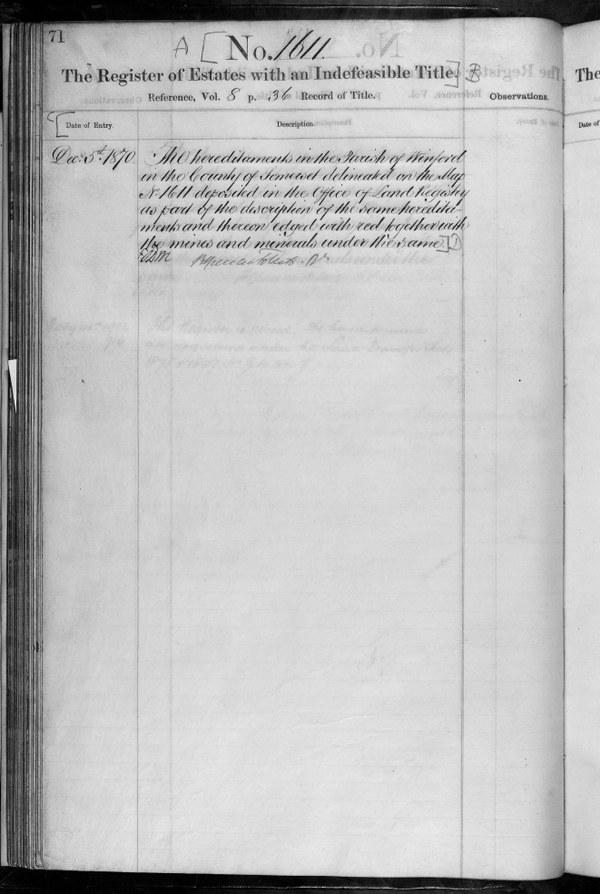 71
A [ No. 1611.
The Register of Estates with an Indefeasible Title. ] B
Reference, Vol. 8 p. 36 Record of Title.
Observations.
[ Date of Entry.
Description.
Decr. 5th. 1870.
The hereditaments in the Parish of Winford
in the County of Somerset delineated on the Map
No. 1611 deposited in the Office of Land Registry
as part of the description of the same heredita-
ments and thereon edged with red together with
the mines and minerals under the same ]
The
Date of